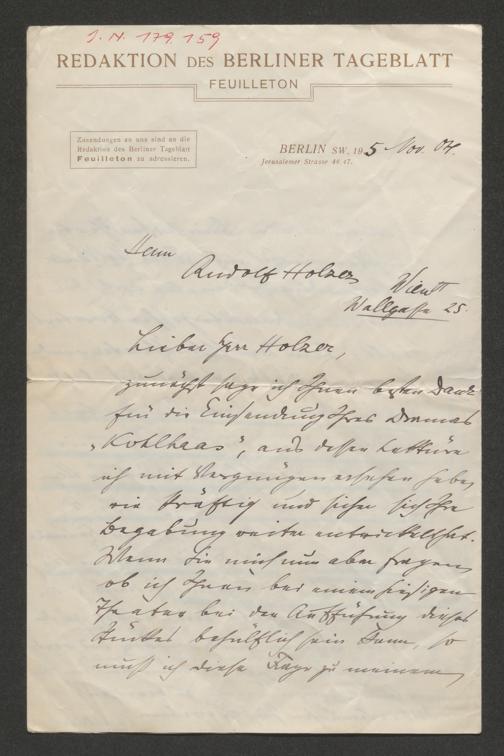 J. N. 179.159
REDAKTION DES BERLINER TAGEBLATT
FEUILLETON
Zusendungen an uns sind an die
Redaktion des Berliner Tageblatt
Feuilleton zu adressieren.
BERLIN SW. 19, 5 Nov. 04.
Jerusalemer Strasse 46/47.
Herrn
Rudolf Holzer
Wien
Wallgasse 25.
Lieber Herr Holzer,
zunächst sage ich Ihnen besten Dank
für die Einsendung Ihres Dramas
„Kohlhaas“, aus dessen Lektüre
ich mit Vergnügen ersehen habe,
wie kräftig und sicher sich Ihre
Begabung weiter entwickelt hat.
Wenn Sie mich nun aber fragen,
ob ich Ihnen bei einem hiesigen
Theater bei der Aufführung dieses
Stückes behülflich sein kann, so
muß ich diese Frage zu meinem